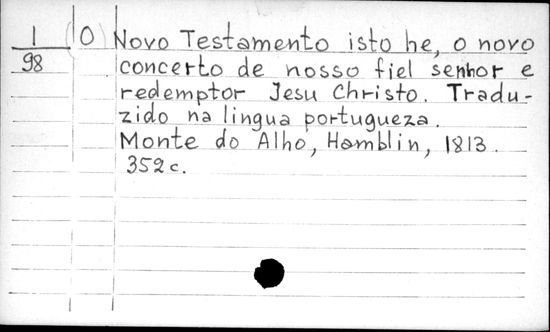 1 (O) Novo Testamento isto he, o novo
98 concerto de nosso fiel senhor e
redemptor Jesu Christo. Tradu-
zido na lingua portugueza.
Monte do Alho, Hamblin, 1813.
352 c.